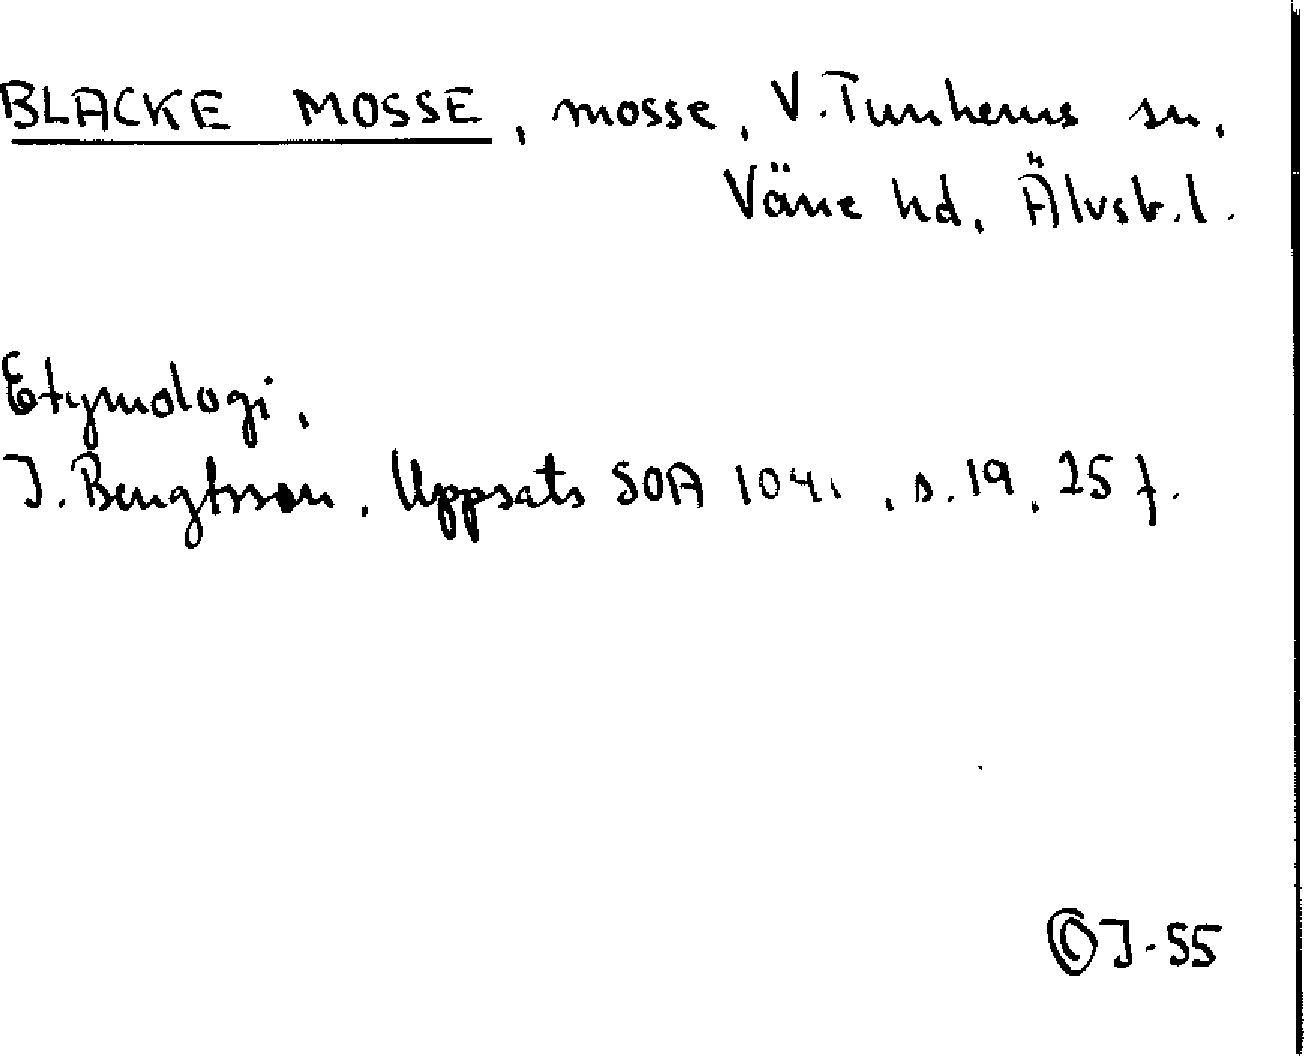 BLACKE MOSSE, mosse, V. Tunhems sn,
Väne hd, Älvsb. l.
Etymologi,
J. Bengtsson, Uppsats SOA 104i, s. 19, 25 f.
© J-55